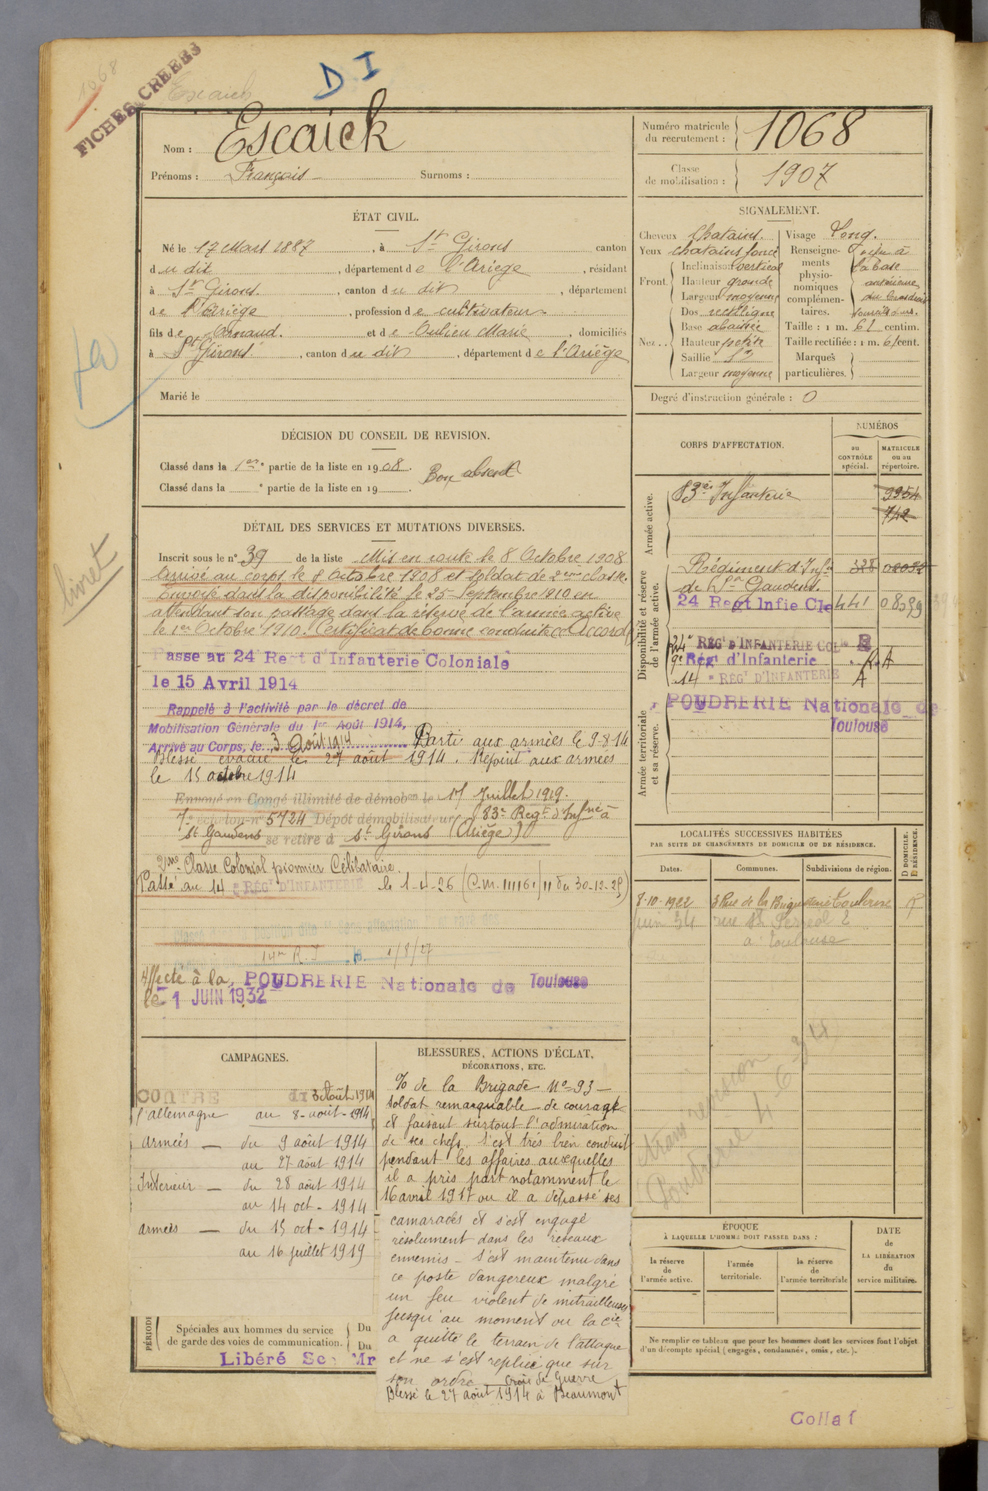 1068
FICHES CREEES
Escaich
D I
Nom : Escaich
Prénoms : François Surnoms :
ÉTAT CIVIL.
Né le 17 Mars 1887, à St Girons canton
du dit, département de l'Ariège, résidant
à St Girons, canton du dit, département
de l'Ariège, profession de cultivateur
fils de Arnaud et de Marie, domiciliés
à St Girons, canton du dit, département de l'Ariège
Marié le
DÉCISION DU CONSEIL DE REVISION.
Classé dans la 1ere partie de la liste en 1908. Bon absent
Classé dans la ° partie de la liste en 19
DÉTAIL DES SERVICES ET MUTATIONS DIVERSES.
livret
Inscrit sous le n° 39 de la liste Mis en route le 8 Octobre 1908
Arrivé au corps le 8 Octobre 1908 et soldat de 2me classe.
Envoyé dans la disponibilité le 25 Septembre 1910 en
attendant son passage dans la réserve de l'armée active
le 1er Octobre 1910. Certificat de bonne conduite "Accordé"
Passe au 24 Regt d'Infanterie Coloniale
le 15 Avril 1914
Rappelé à l'activité par le décret de
Mobilisation Générale du 1er Août 1914,
Arrivé au Corps, le 3 Août 1914 Parti aux armées le 9-8-14
Blessé évacué le 27 août 1914. Rejoint aux armées
le 15 octobre 1914
Envoyé en Congé illimité de démobon le 17 Juillet 1919.
7e echelon n° 5724 Dépôt démobilisateur 83e Regt d'Infrie à
St Gaudens se retire à St Girons (Ariège)
Classe Colonial premier Célibataire.
Passé au 14e RÉGt D'INFANTERIE le 1-4-26 (C.M. 11116 1/11 du 30-12-25)
14e R.I 1/8/27
Affecté à la POUDRERIE Nationale de Toulouse
le 1 JUIN 1932
CAMPAGNES.
CONTRE du 3 Août 1914
l'allemagne au 8-août-1914
Armées — du 9 août 1914
au 27 août 1914
Intérieur — du 28 août 1914
au 14 oct - 1914
armées — du 15 oct - 1914
au 16 juillet 1919
PÉRIODES
Spéciales aux hommes du service
de garde des voies de communication.
Du
Du
Libéré Sc Mr
BLESSURES, ACTIONS D'ÉCLAT,
DÉCORATIONS, ETC.
% de la Brigade N° 93 —
soldat remarquable de courage
et faisant surtout l'admiration
de ses chefs. S'est très bien conduit
pendant les affaires auxquelles
il a pris part notamment le
16 avril 1917 ou il a dépassé ses
camarades et s'est engagé
résolument dans les réseaux
ennemis — s'est maintenu dans
ce poste dangereux malgré
un feu violent de mitrailleuses
jusqu'au moment ou la Cie
a quitté le terrain de l'attaque
et ne s'est replié que sur
son ordre — Croix de Guerre
Blessé le 27 août 1914 à Beaumont
Numéro matricule
du recrutement : 1068
Classe
de mobilisation : 1907
SIGNALEMENT.
Cheveux Chatains.
Yeux chatains foncé
Front. Inclinaison vertical
Hauteur grande
Largeur moyenne
Nez. Dos rectiligne
Base abaissée
Hauteur petite
Saillie
Largeur moyenne
Visage long.
Renseignements physionomiques complémentaires.
Taille : 1 m. 61 centim.
Taille rectifiée : 1 m. 61 cent.
Marques
particulières.
Degré d'instruction générale : 0
CORPS D'AFFECTATION.
NUMÉROS
au
CONTRÔLE
spécial.
MATRICULE
ou au
répertoire.
Armée active.
83e Infanterie 9954
742
Disponibilité et réserve
de l'armée active.
Régiment d'Infie
de St Gaudens.
24 Regt Infie Cle 441 08039
24e RÉGt D'INFANTERIE COLle
9e Régt d'Infanterie A
14e RÉGt D'INFANTERIE A
Armée territoriale
et sa réserve.
POUDRERIE Nationale de
Toulouse
LOCALITÉS SUCCESSIVES HABITÉES
PAR SUITE DE CHANGEMENTS DE DOMICILE OU DE RÉSIDENCE.
Dates.
Communes.
Subdivisions de région.
D DOMICILE.
R RÉSIDENCE.
8-10-1922 3 Rue de la Briqueterie Toulouse
juin 34
à Toulouse
Poudrerie 4-6-34
ÉPOQUE
À LAQUELLE L'HOMME DOIT PASSER DANS :
la réserve
de
l'armée active.
l'armée
territoriale.
la réserve
de
l'armée territoriale
DATE
de
LA LIBÉRATION
du
service militaire.
Ne remplir ce tableau que pour les hommes dont les services font l'objet
d'un décompte spécial (engagés, condamnés, omis, etc.).